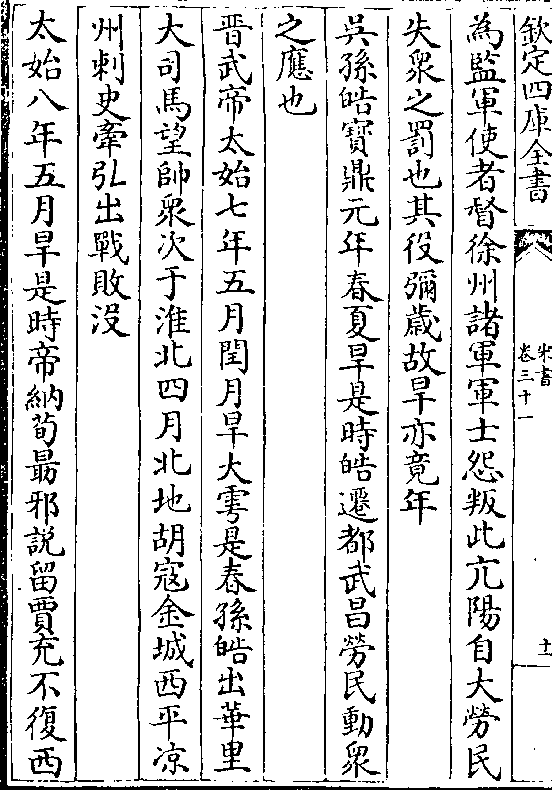 欽定四庫全書
宋書
卷三十一
十一
為監軍使者督徐州諸軍軍士怨叛此亢陽自大勞民
失衆之罰也其役彌歲故旱亦竟年
吳孫皓寳鼎元年春夏旱是時皓遷都武昌勞民動衆
之應也
晉武帝太始七年五月閏月旱大雩是春孫皓出華里
大司馬望帥衆次于淮北四月北地胡寇金城西平凉
州刺史牽弘出戰敗沒
太始八年五月旱是時帝納荀勗邪說留賈充不復西